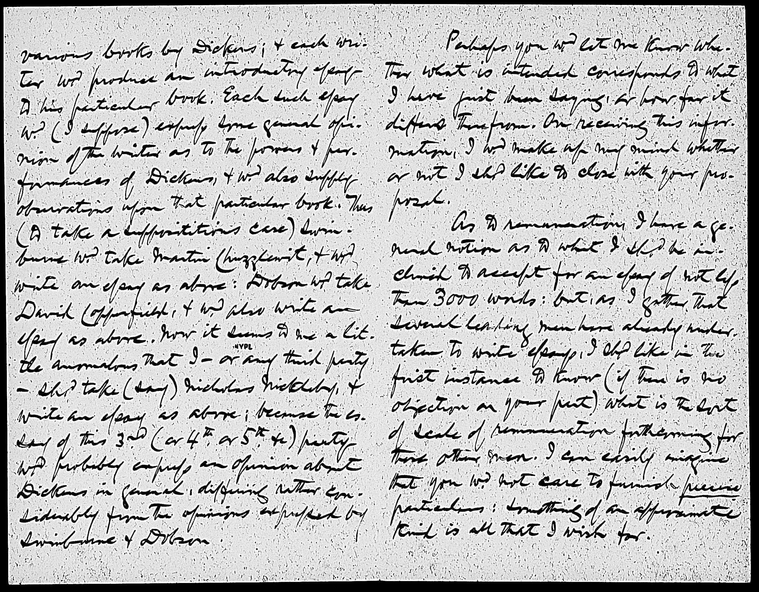 various books by Dickens; & each wri-
ter wd produce an introductory essay
to his particular book. Each such essay
wd (I suppose) express some general opi-
nion of the writer as to the powers & per-
formances of Dickens, & wd also supply
observations upon that particular book. Thus
(to take a supposititious case) Swin-
burne wd take Martin Chuzzlewit, & wd
write an essay as above: Dobson wd take
David Copperfield, & wd also write an
essay as above. Now it seems to me a lit-
tle anomalous that I – or any third party
NYPL
– shd take (say) Nicholas Nickleby, &
write an essay as above; because the es-
say of this 3rd (or 4th or 5th &c) party
wd probably express an opinion about
Dickens in general, differing rather con-
siderably from the opinions expressed by
Swinburne & Dobson.
Perhaps you wd let me know whe-
ther what is intended corresponds to what
I have just been saying, or how far it
differs therefrom. On receiving this infor-
mation, I wd make up my mind whether
or not I shd like to close with your pro-
posal.
As to remuneration, I have a ge-
neral notion as to what I shd be in-
clined to accept for an essay of not less
than 3000 words: but, as I gather that
several leading men have already under-
taken to write essays, I shd like in the
first instance to know (if there is no
objection on your part) what is the sort
of scale of remuneration forthcoming for
these other men. I can easily imagine
that you wd not care to furnish precise
particulars: something of an approximate
kind is all that I wish for.